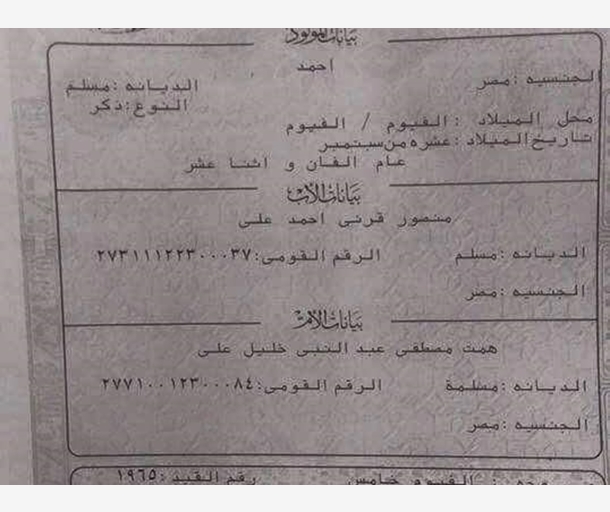 بيانات المولود
احمد
الجنسيه :مصر
الديانه :مسلم
النوع:ذكر
محل الميلاد :الفيوم / الفيوم
تاريخ الميلاد :عشره من سبتمبر
عام الفان و اثنا عشر
بيانات الأب
منصور قرنى احمد على
الديانه :مسلم الرقم القومى:٢٧٣١١١٢٢٣٠٠٠٣٧
الجنسيه :مصر
بيانات الأم
همت مصطفى عبد النبى خليل على
الديانه :مسلمة الرقم القومى:٢٧٧١٠٠١٢٣٠٠٠٨٤
الجنسيه :مصر
الفيوم خامس رقم القيد :١٩٦٥